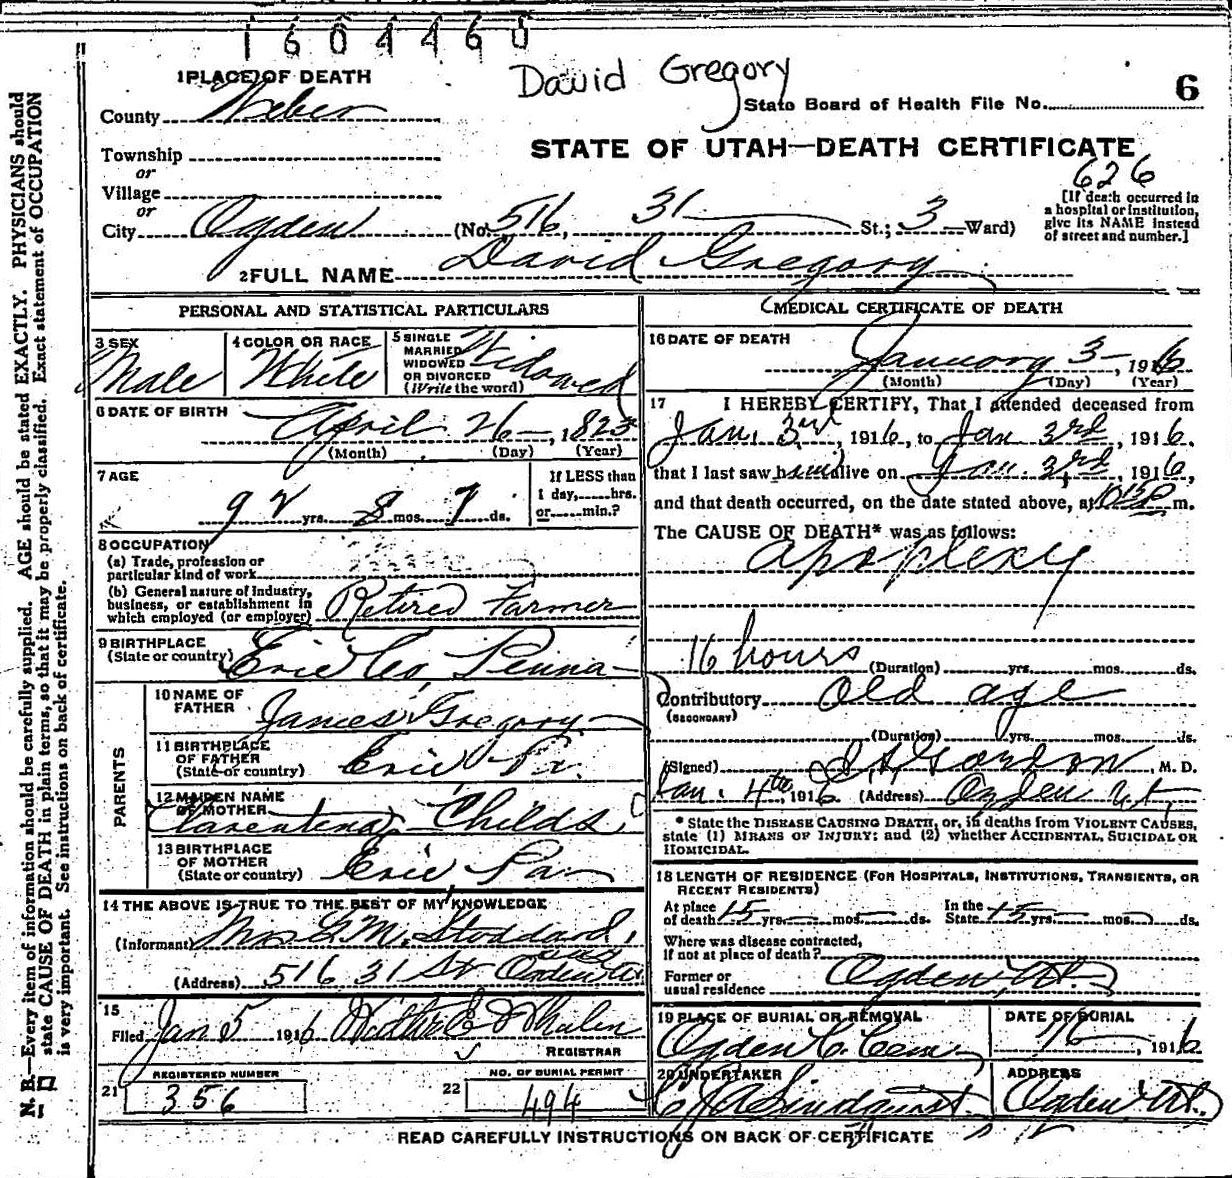 1604460
David Gregory
1 PLACE OF DEATH
County Weber
State Board of Health File No. 6
Township
or
Village
or
City Ogden (No. 516, 31 St.; 3 Ward)
STATE OF UTAH—DEATH CERTIFICATE
626
[If death occurred in
a hospital or institution,
give its NAME instead
of street and number.]
2 FULL NAME David Gregory
PERSONAL AND STATISTICAL PARTICULARS
3 SEX
Male
4 COLOR OR RACE
White
5 SINGLE
MARRIED
WIDOWED
OR DIVORCED
(Write the word)
Widowed
6 DATE OF BIRTH
April 26, 1823
(Month) (Day) (Year)
7 AGE
92 yrs. 8 mos. 7 ds.
If LESS than
1 day, hrs.
or min.?
8 OCCUPATION
(a) Trade, profession or
particular kind of work
(b) General nature of industry,
business, or establishment in
which employed (or employer) Retired Farmer
9 BIRTHPLACE
(State or country) Erie Co, Penna
PARENTS
10 NAME OF
FATHER James Gregory
11 BIRTHPLACE
OF FATHER
(State or country) Erie Pa.
12 MAIDEN NAME
OF MOTHER Childs
13 BIRTHPLACE
OF MOTHER
(State or country) Erie Pa
14 THE ABOVE IS TRUE TO THE BEST OF MY KNOWLEDGE
(Informant) Mrs G. M. Stoddard,
(Address) 516 31 St Ogden
15
Filed Jan 5 1916 Whalen
REGISTRAR
REGISTERED NUMBER
21 356
NO. OF BURIAL PERMIT
22 494
MEDICAL CERTIFICATE OF DEATH
16 DATE OF DEATH
January 3, 1916
(Month) (Day) (Year)
17 I HEREBY CERTIFY, That I attended deceased from
Jan. 3rd, 1916, to Jan 3rd, 1916.
that I last saw him alive on Jan. 3rd, 1916,
and that death occurred, on the date stated above, at m.
The CAUSE OF DEATH* was as follows:
apoplexy
16 hours (Duration) yrs. mos. ds.
Contributory Old age
(SECONDARY)
(Duration) yrs. mos. ds.
(Signed) Gordon M. D.
Jan. 4th, 1916. (Address) Ogden Ut.
* State the DISEASE CAUSING DEATH, or, in deaths from VIOLENT CAUSES,
state (1) MEANS OF INJURY; and (2) whether ACCIDENTAL, SUICIDAL OR
HOMICIDAL.
18 LENGTH OF RESIDENCE (FOR HOSPITALS, INSTITUTIONS, TRANSIENTS, OR
RECENT RESIDENTS)
At place In the
of death 15 yrs. mos. ds. State 15 yrs. mos. ds.
Where was disease contracted,
if not at place of death?
Former or
usual residence Ogden, Ut.
19 PLACE OF BURIAL OR REMOVAL
Ogden C. Cem.
DATE OF BURIAL
1/6, 1916
20 UNDERTAKER
Lindquist
ADDRESS
Ogden Ut.
READ CAREFULLY INSTRUCTIONS ON BACK OF CERTIFICATE
N. B.—Every item of information should be carefully supplied. AGE should be stated EXACTLY. PHYSICIANS should
state CAUSE OF DEATH in plain terms, so that it may be properly classified. Exact statement of OCCUPATION
is very important. See instructions on back of certificate.